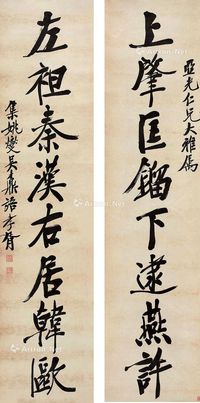 亞光仁兄大雅屬
上肇匡鎦下逮燕許
左祖秦漢右居韓歐
集姚燮吳鼒語 李胥